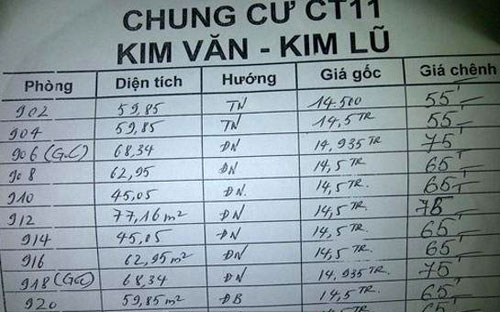 CHUNG CƯ CT11
KIM VĂN - KIM LŨ
Phòng Diện tích Hướng Giá gốc Giá chênh
902 59,85 TN 14.500 55T
904 59,85 TN 14,5 TR 55T
906 (GC) 68,34 ĐN 14,935 TR 75T
908 62,95 ĐN 14,5 TR 65T
910 45,05 ĐN. 14,5 TR. 65T
912 77,16 m² ĐN 14,5 TR. 75T
914 45,05 ĐN 14,5 TR. 65T
916 62,95 m² ĐN 14,5 TR. 65T
918 (GC) 68,34 ĐN 14.935 TR 75T
920 59,85 m² ĐB 14,5 TR. 65T